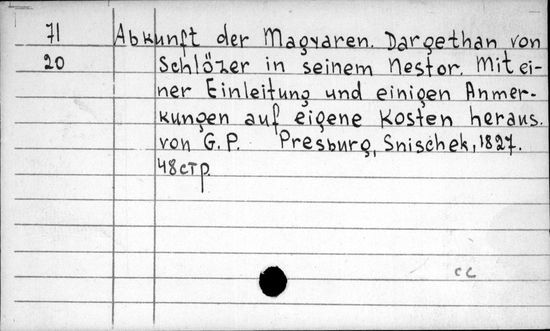 71 Abkunft der Magyaren. Dargethan von
20 Schlözer in seinem Nestor. Mit ei-
ner Einleitung und einigen Anmer-
kungen auf eigene Kosten heraus.
von G. P. Presburg, Snischek, 1827.
48 стр.
cc